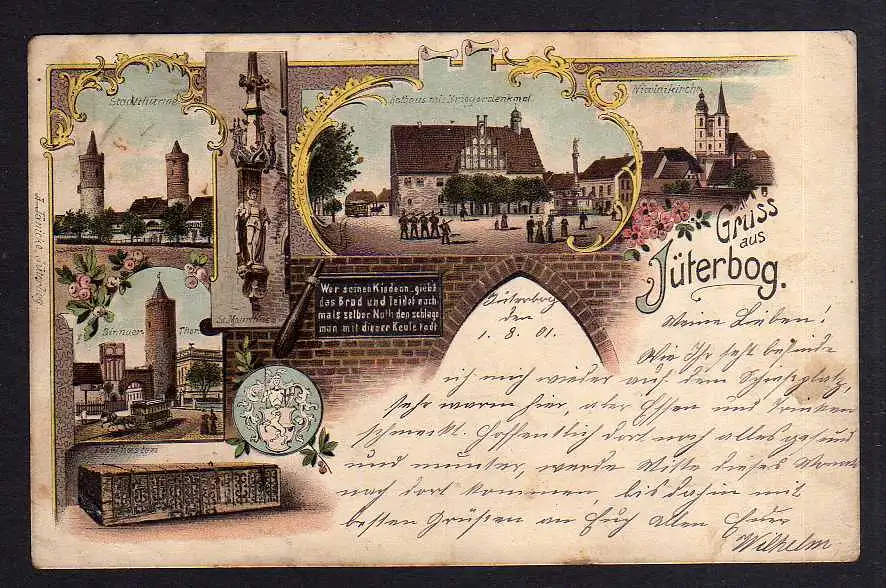 Stadtthürme
Rathaus mit Kriegerdenkmal
Nicolaikirche
Gruss
aus
Jüterbog.
St. Mauritius
Wer seinen Kindern giebt
das Brod und leidet nach
mals selber Noth den schlage
man mit dieser Keule todt
Dammer Thor
Tezelkasten
Jüterbog
den
1. 8. 01.
Meine Lieben!
Wie Ihr seht befinde
ich mich wieder auf dem Schießplatz,
sehr warm hier, aber Essen und Trinken
schmeckt. Hoffentlich dort noch alles gesund
und munter, werde Mitte dieses Monats
nach dort kommen, bis dahin mit
besten Grüßen an Euch Allen Euer
Wilhelm.